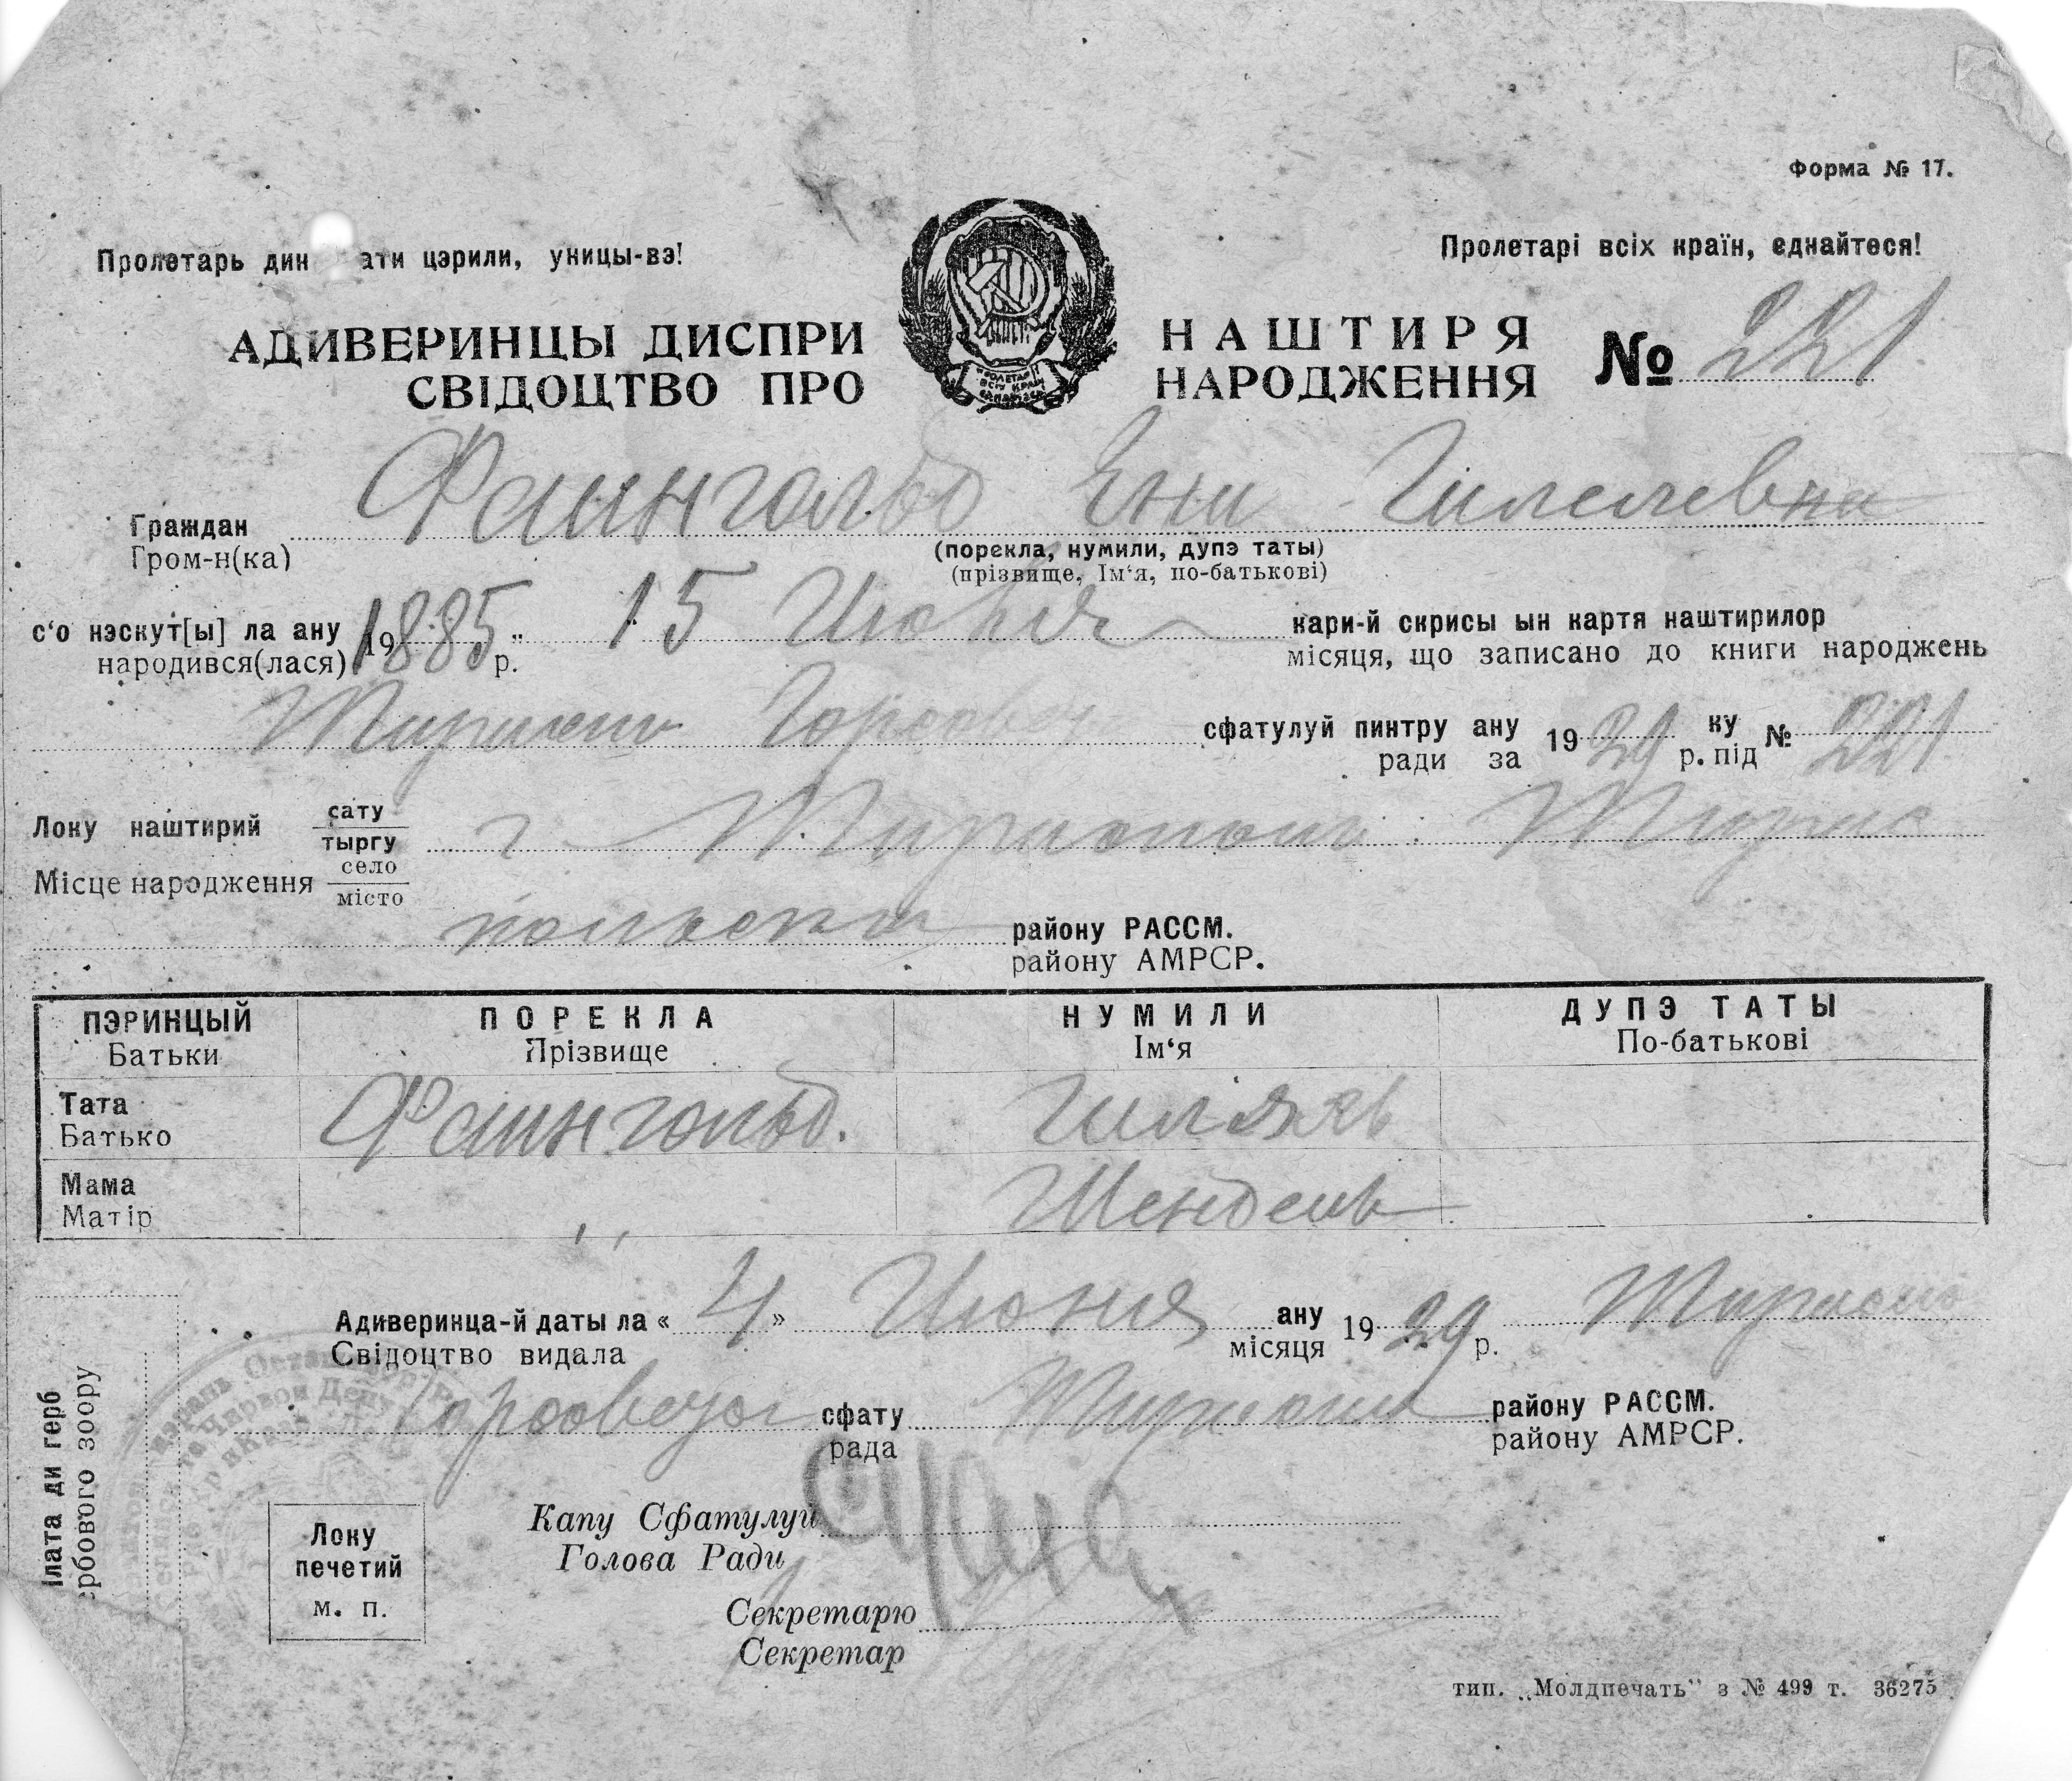 Форма № 17.
Пролетарь дин ати цэрили, уницы-вэ!
Пролетарі всіх країн, єднайтеся!
АДИВЕРИНЦЫ ДИСПРИ НАШТИРЯ
СВІДОЦТВО ПРО НАРОДЖЕННЯ
№ 221
Граждан Фаингольд Ени Гилелевна
Гром-н(ка)
(порекла, нумили, дупэ таты)
(прізвище, Ім‘я, по-батькові)
с‘о нэскут[ы] ла ану 1885 " 15 Июня кари-й скрисы ын картя наштирилор
народився(лася) 19 р. місяця, що записано до книги народжень
сфатулуй пинтру ану 1929 ку № 221
ради за р. під
Локу наштирий сату
тыргу
г. Тирасполь Тирас
Місце народження село
місто
польского району РАССМ.
району АМРСР.
ПЭРИНЦЫЙ ПОРЕКЛА НУМИЛИ ДУПЭ ТАТЫ
Батьки Прізвище Ім‘я По-батькові
Тата Фаингольд.
Батько
Мама ,, Шендель
Матір
Адиверинца-й даты ла « 4 » Июня ану 1929 р. Тирасп
Свідоцтво видала місяця
сфату району РАССМ.
рада району АМРСР.
ілата ди герб
ербового збору
Локу
печетий
м. п.
Капу Сфатулуй
Голова Ради
Секретарю
Секретар
тип. „Молдпечать" з № 499 т. 36275